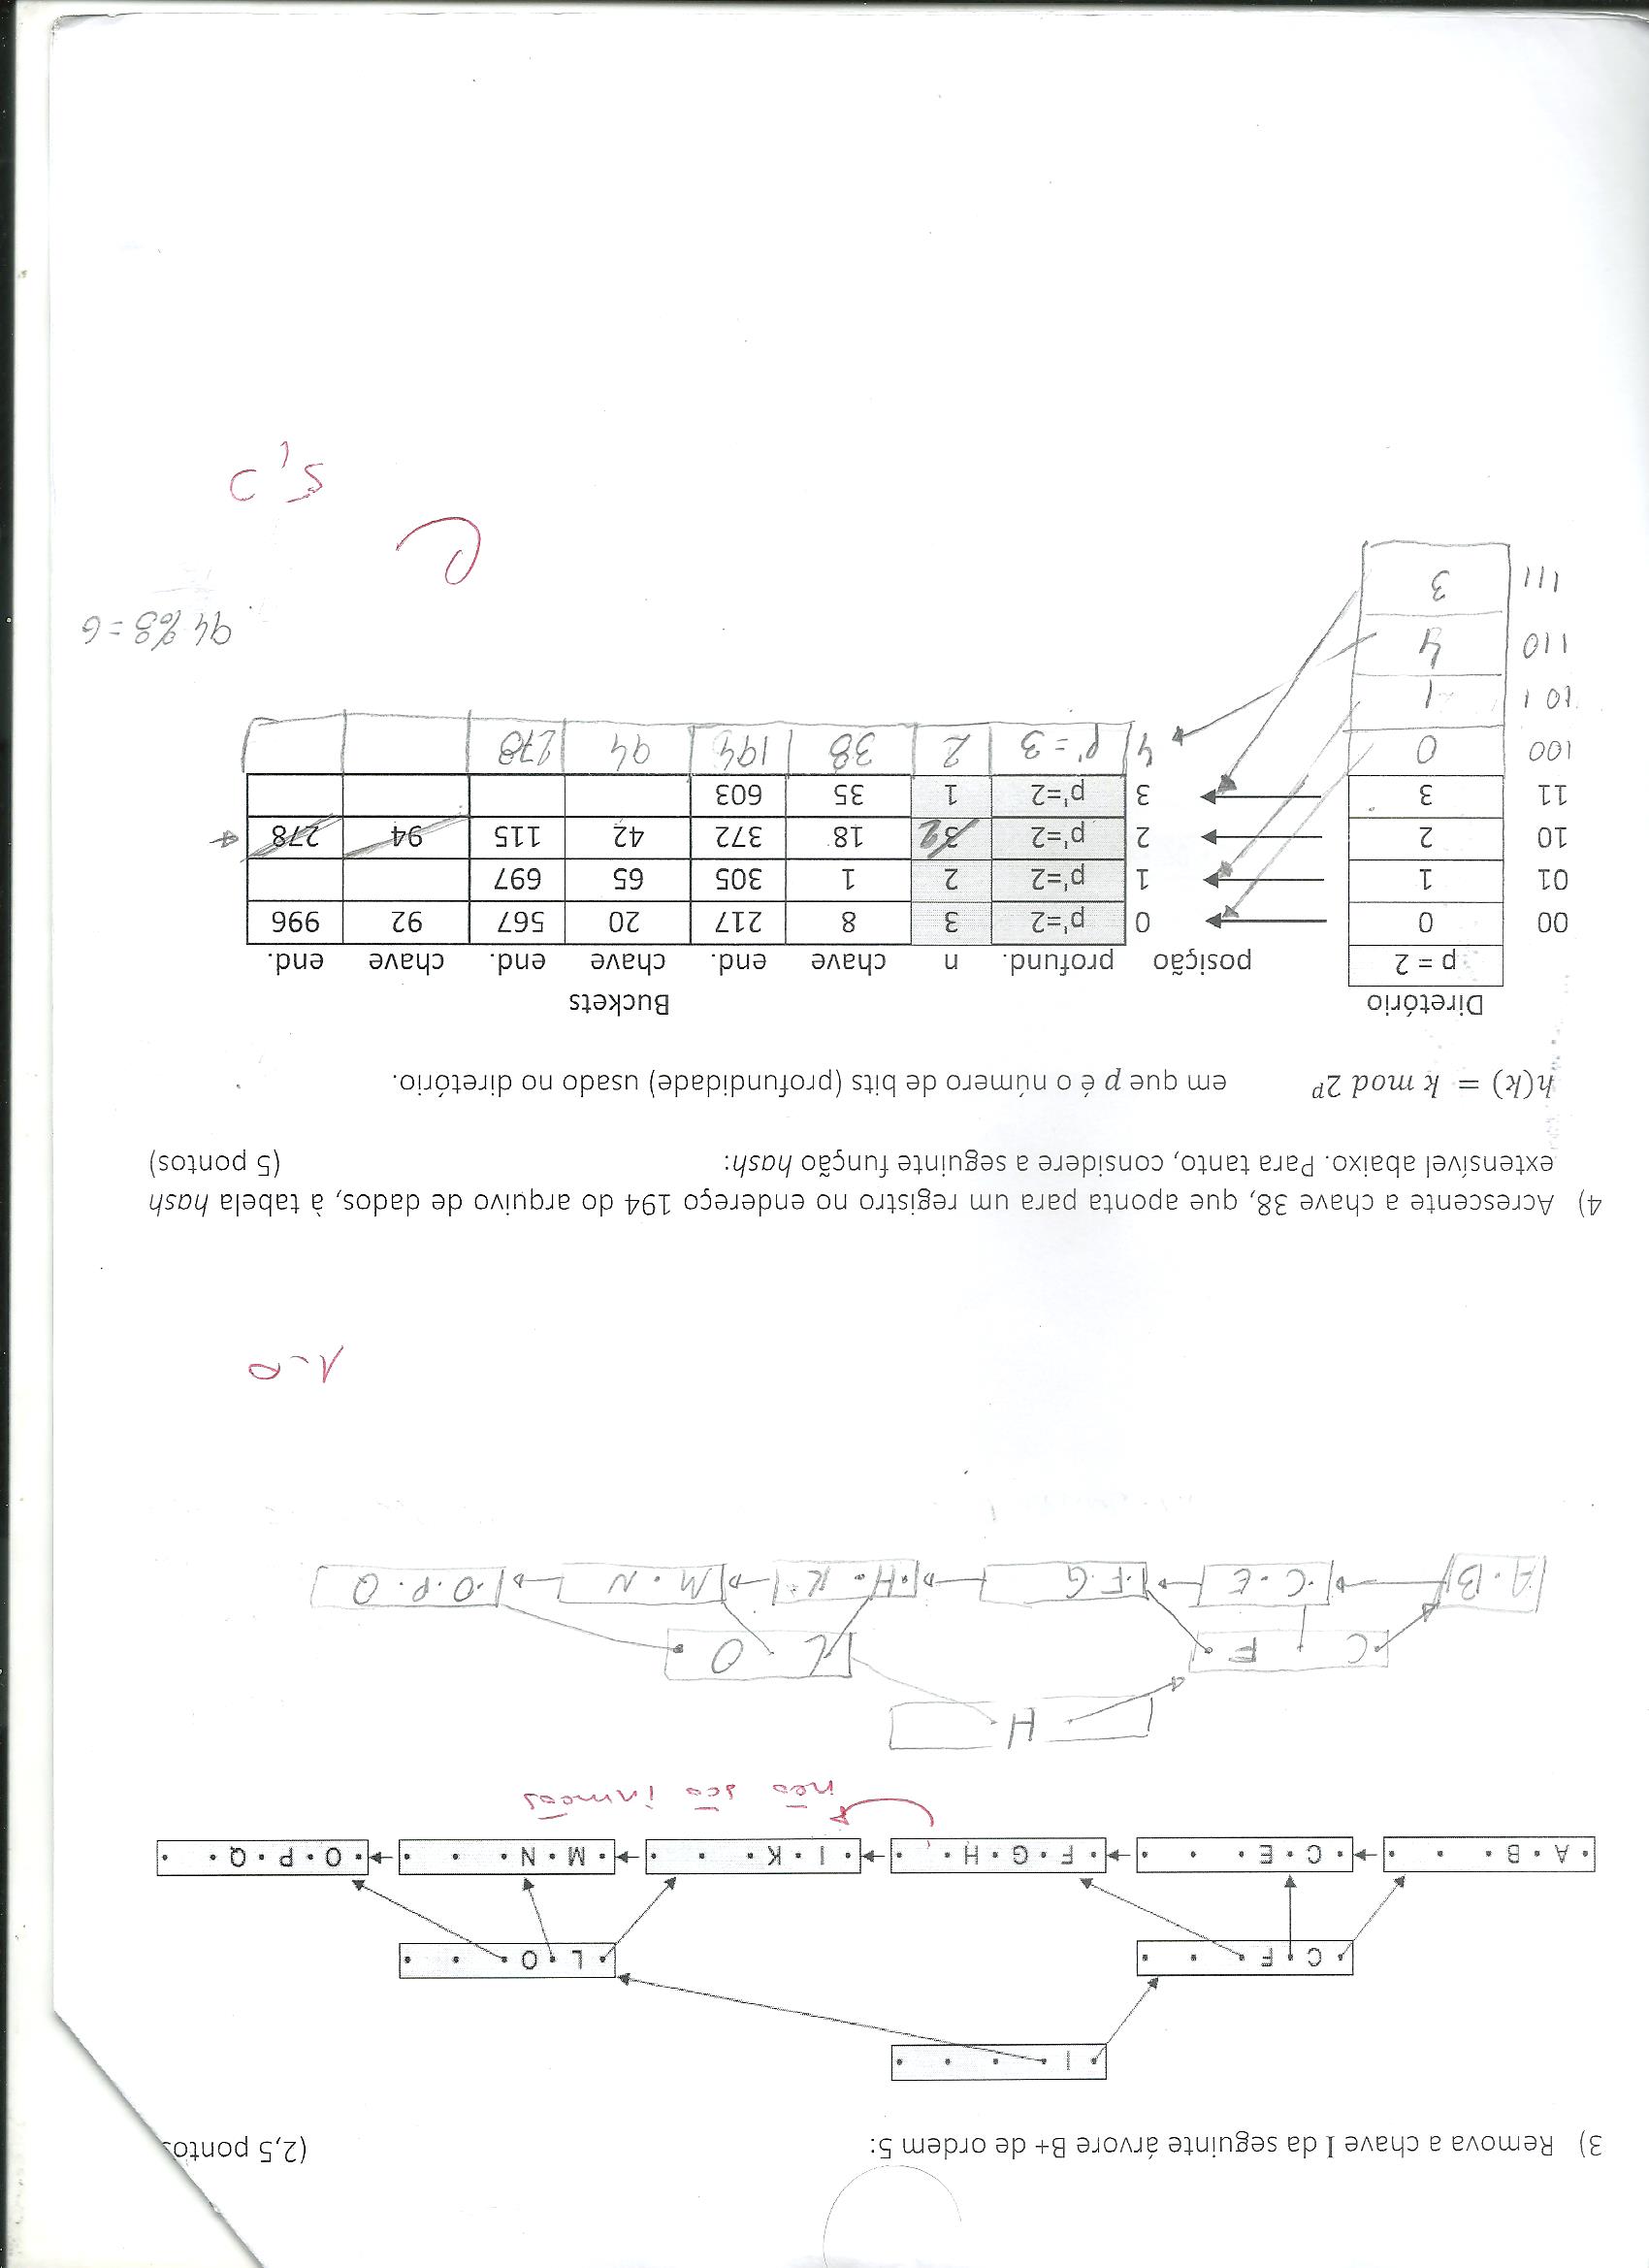 3) Remova a chave I da seguinte árvore B+ de ordem 5: (2,5 pontos
I
C F L O
A B C E F G H I K M N O P Q
não são inmãos
H
C F L O
A . B C . E F G H . K M . N O . P . Q
1.0
4) Acrescente a chave 38, que aponta para um registro no endereço 194 do arquivo de dados, à tabela hash
extensível abaixo. Para tanto, considere a seguinte função hash: (5 pontos)
h(k) = k mod 2^p em que p é o número de bits (profundidade) usado no diretório.
Diretório Buckets
p = 2 posição profund. n chave end. chave end. chave end.
00 0 0 p'=2 3 8 217 20 567 92 996
01 1 1 p'=2 2 1 305 65 697
10 2 2 p'=2 3 2 18 372 42 115 94 278
11 3 3 p'=2 1 35 603
100 0 4 p'=3 2 38 194 94 278
101 1
110 4
94%8=6
111 3
C
5,0